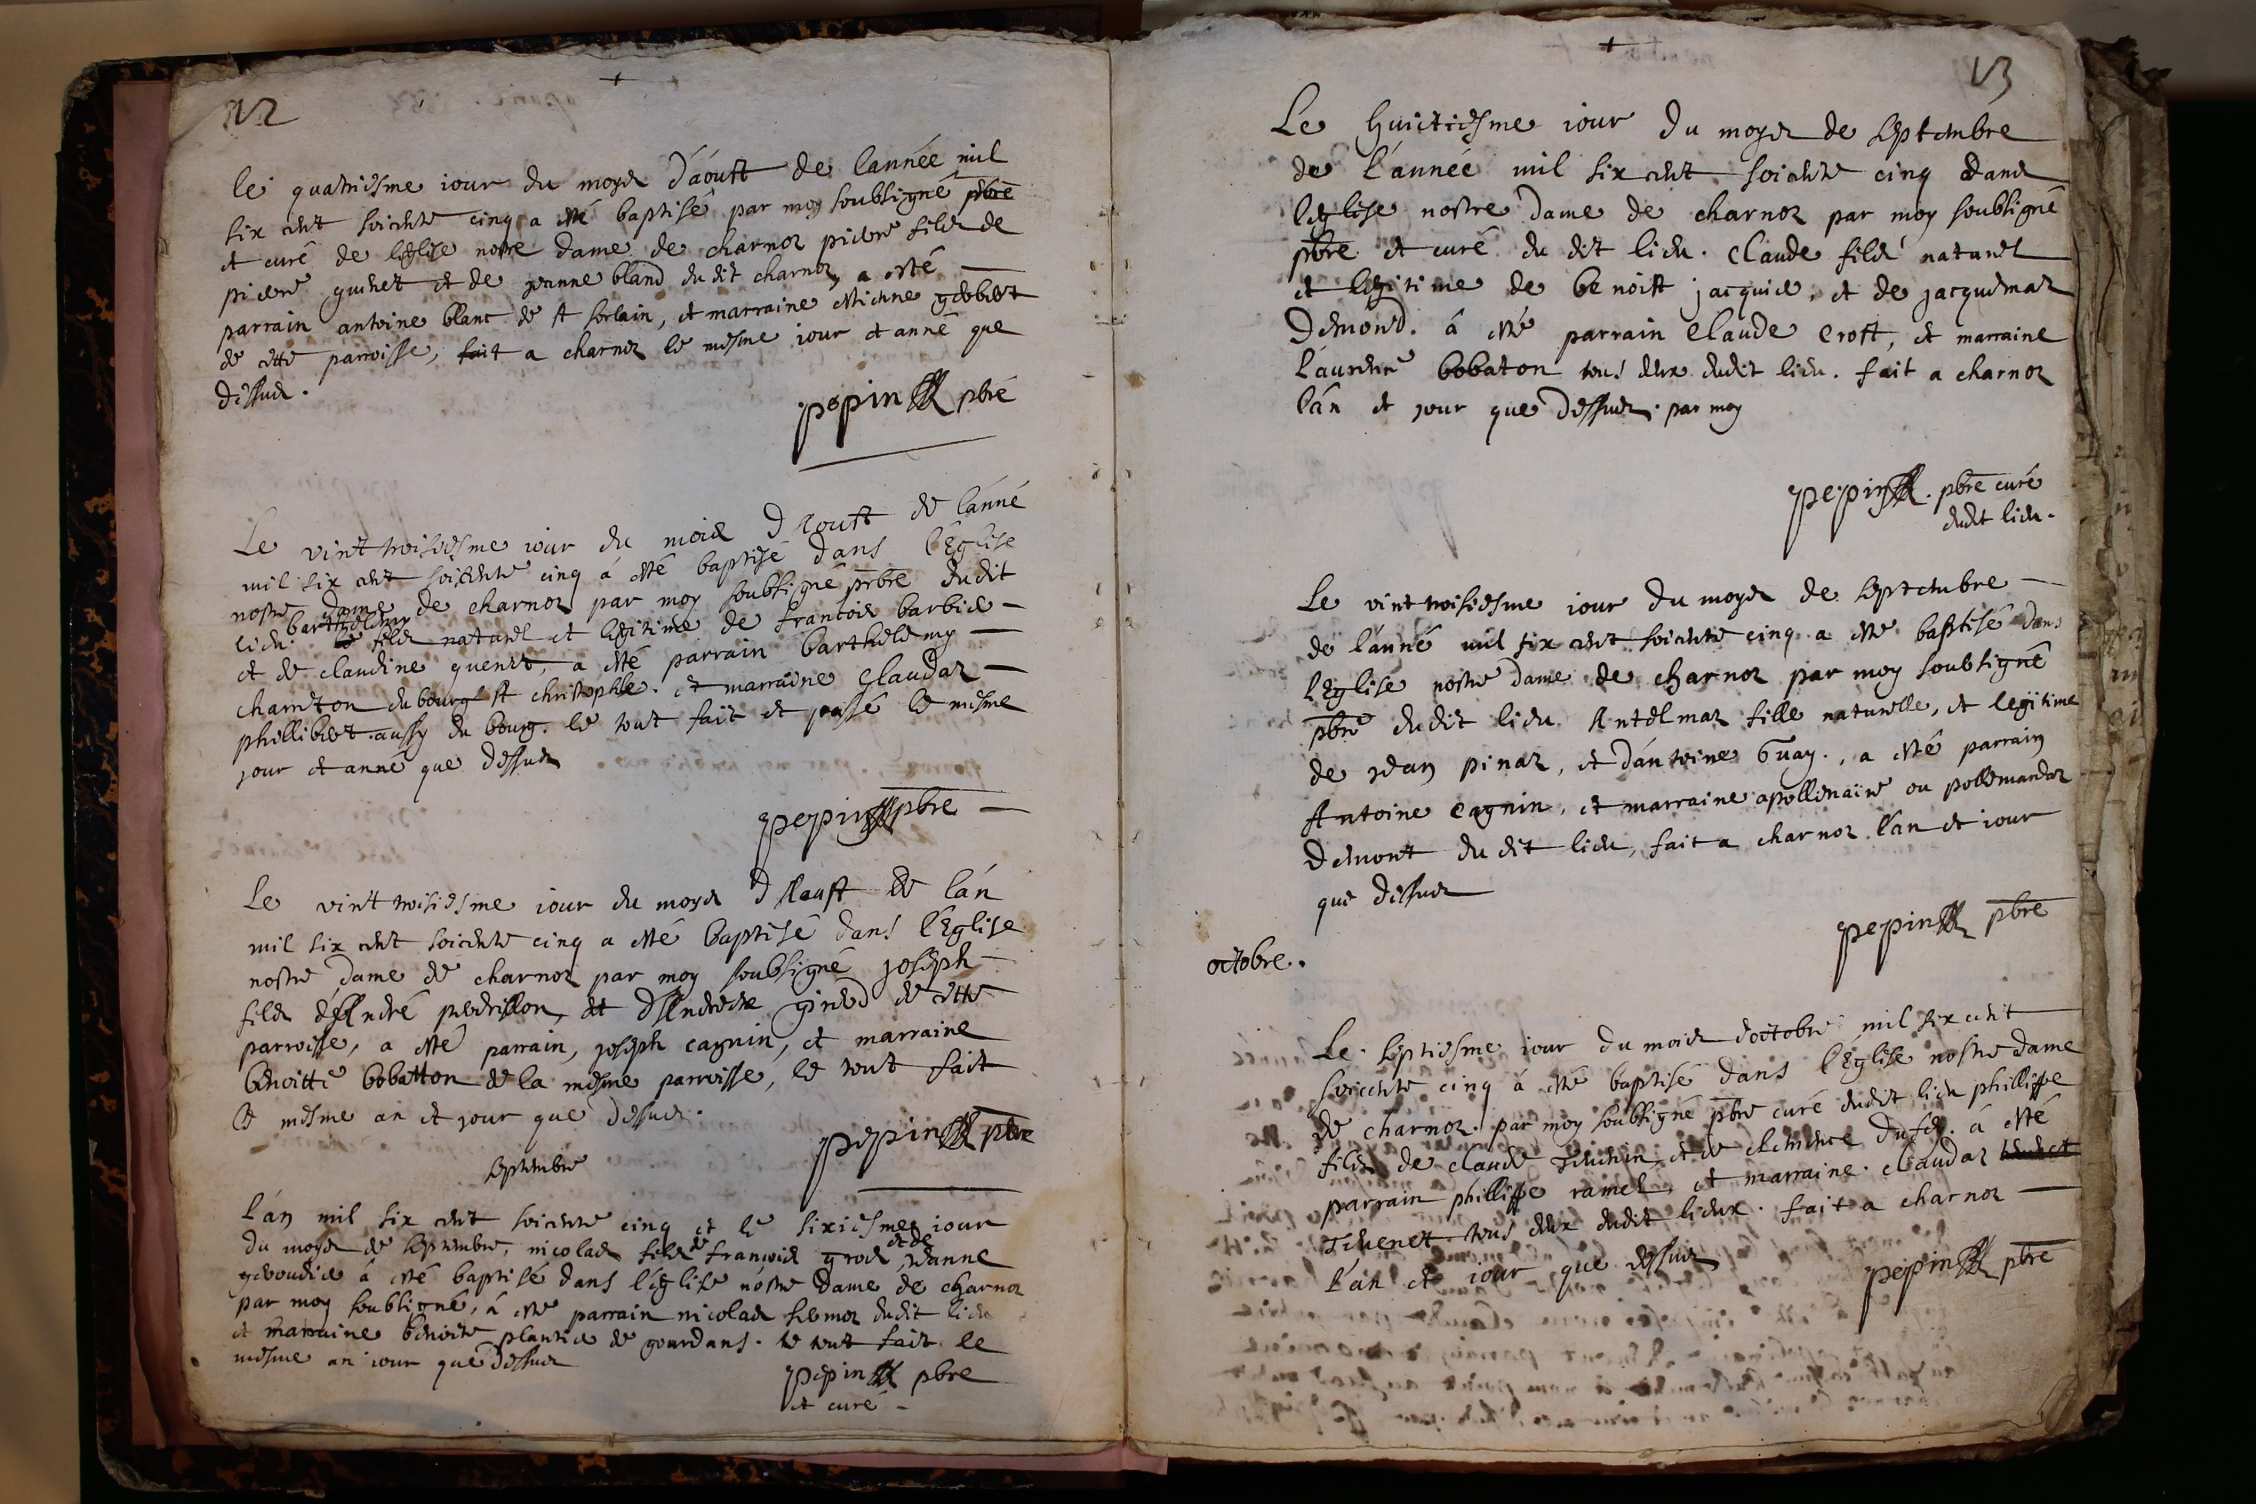 12
le quatriesme iour du moys d'aoust de l'année mil
six cent soicente cinq a esté baptisé par moy soubsigné pbre
et curé de leglise nostre dame de charnoz pierre fils de
pierre guinet et de jeanne bland du dit charnoz, a esté
parrain antoine blanc de st sorlain, et marraine estienne gerbert
de cette parroisse, fait a charnoz le mesme iour et anné que
dessus.
pepin pbre
Le vint troisiesme iour du mois d aoust de l'anné
mil six cent soicente cinq á esté baptisé dans l'Eglise
nostre dame de charnoz par moy soubsigné prbre dudit
lieu. barthelemy fils naturel et legitime de francois barbier
et de claudine guenet, a esté parrain barthelemy
chamton du bourg st christophle. et marraine Claudaz
phillibert aussy du bourg. le tout fait et passé le mesme
jour et anné que dessus
pepin pbre
Le vint troisiesme iour du moys d Aoust de l'an
mil six cent soicente cinq a esté baptisé dans l'Eglise
nostre dame de charnoz par moy soubsigné joseph
fils d'André perdrillon, et d'Andrée girod de cette
parroisse, a esté parrain, joseph cagnin, et marraine
benoitte bobatton de la mesme parroisse, le tout fait
le mesme an et jour que dessus.
pepin pbre
septembre
L'an mil six cent soicente cinq et le sixiesme iour
du moys de septembre, nicolas fils de francois gros et de jeanne
geroudie á esté baptisé dans l'église nostre dame de charnoz
par moy soubsigné, á esté parrain nicolas sermoz dudit lieu
et marraine benoite plantier de gourdans. le tout fait le
mesme an iour que dessus
pepin pbre
et curé
13
Le huictiesme iour du moys de septembre
de l'année mil six cent soicente cinq dans
leglise nostre dame de charnoz par moy soubsigné
pbre et curé du dit lieu. Claude fils naturel
et legitime de benoist jacquier, et de jacquemaz
Demond. á esté parrain Claude Crost, et marraine
l'aurence bobaton tous deux dudit lieu. fait a charnoz
l'án et jour que dessus. par moy
pepin. pbre curé
dudit lieu.
Le vint troisiesme iour du moys de septembre
de l'anné mil six cent soicente cinq a esté baptisé dans
l'Eglise nostre dame de charnoz par moy soubsigné
pbre dudit lieu Antelmaz fille naturelle, et legitime
de jean pinaz, et d'antoine Guay., a esté parrain
Antoine Cagnin, et marraine apollenaire ou pollemandaz
Demont du dit lieu, fait a charnoz l'an et iour
que dessus
pepin pbre
octobre.
Le septiesme iour du mois d'octobre mil six cent
soicente cinq á esté baptisé dans l'Eglise nostre dame
de charnoz. par moy soubsigné pbre curé dudit lieu phillippe
fils de claude Tevenin, et de clemence dufer. á esté
parrain phillippe ramel, et marraine. claudaz
Tevenet. tous deux dudit lieux. fait a charnoz
l'án et iour que dessus
pepin pbre